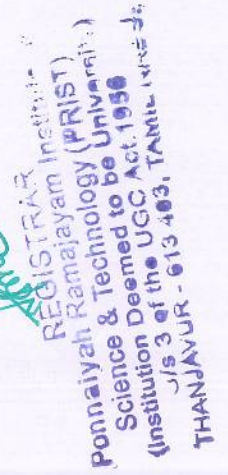 REGISTRAR
Ponnaiyah Ramajayam Institute
Science & Technology (PRIST)
(Institution Deemed to be University)
U/s 3 of the UGC Act.1956
THANJAVUR - 613 403, TAMIL